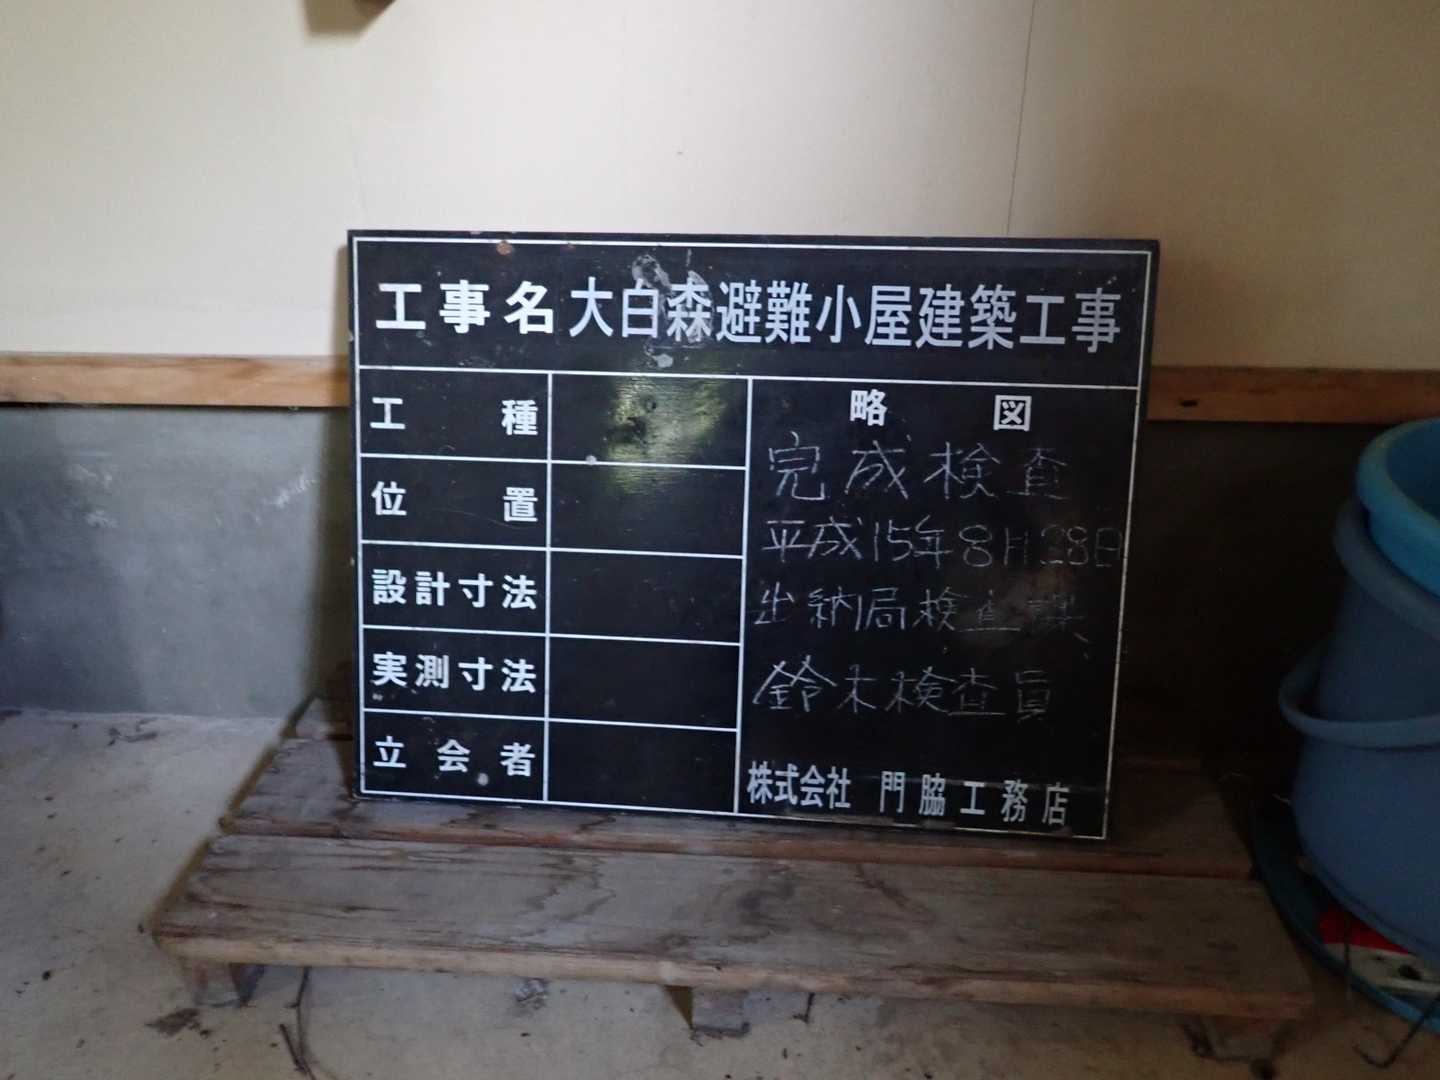 工事名 大白森避難小屋建築工事
工種
位置
設計寸法
実測寸法
立会者
略図
完成検査
平成15年8月28日
出納局検査課
鈴木検査員
株式会社 門脇工務店